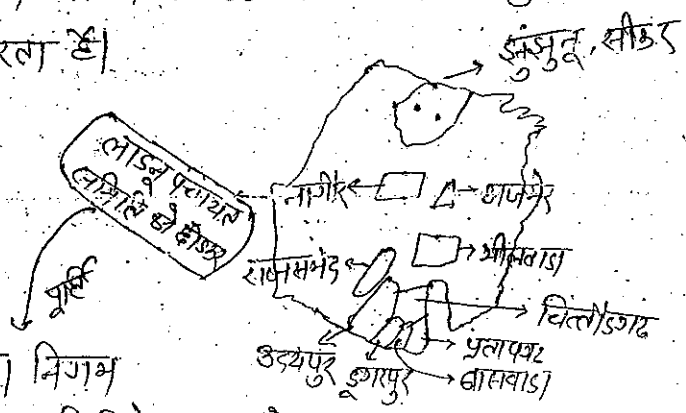 रता है।
झुंझुनू, सीकर
लाडनू पंचायत
समिति को छोड़कर
नागौर
अजमेर
राजसमंद
भीलवाडा
पूर्ति
चित्तौडगढ
उदयपुर डूंगरपुर
प्रतापगढ
बासवाडा
निगम